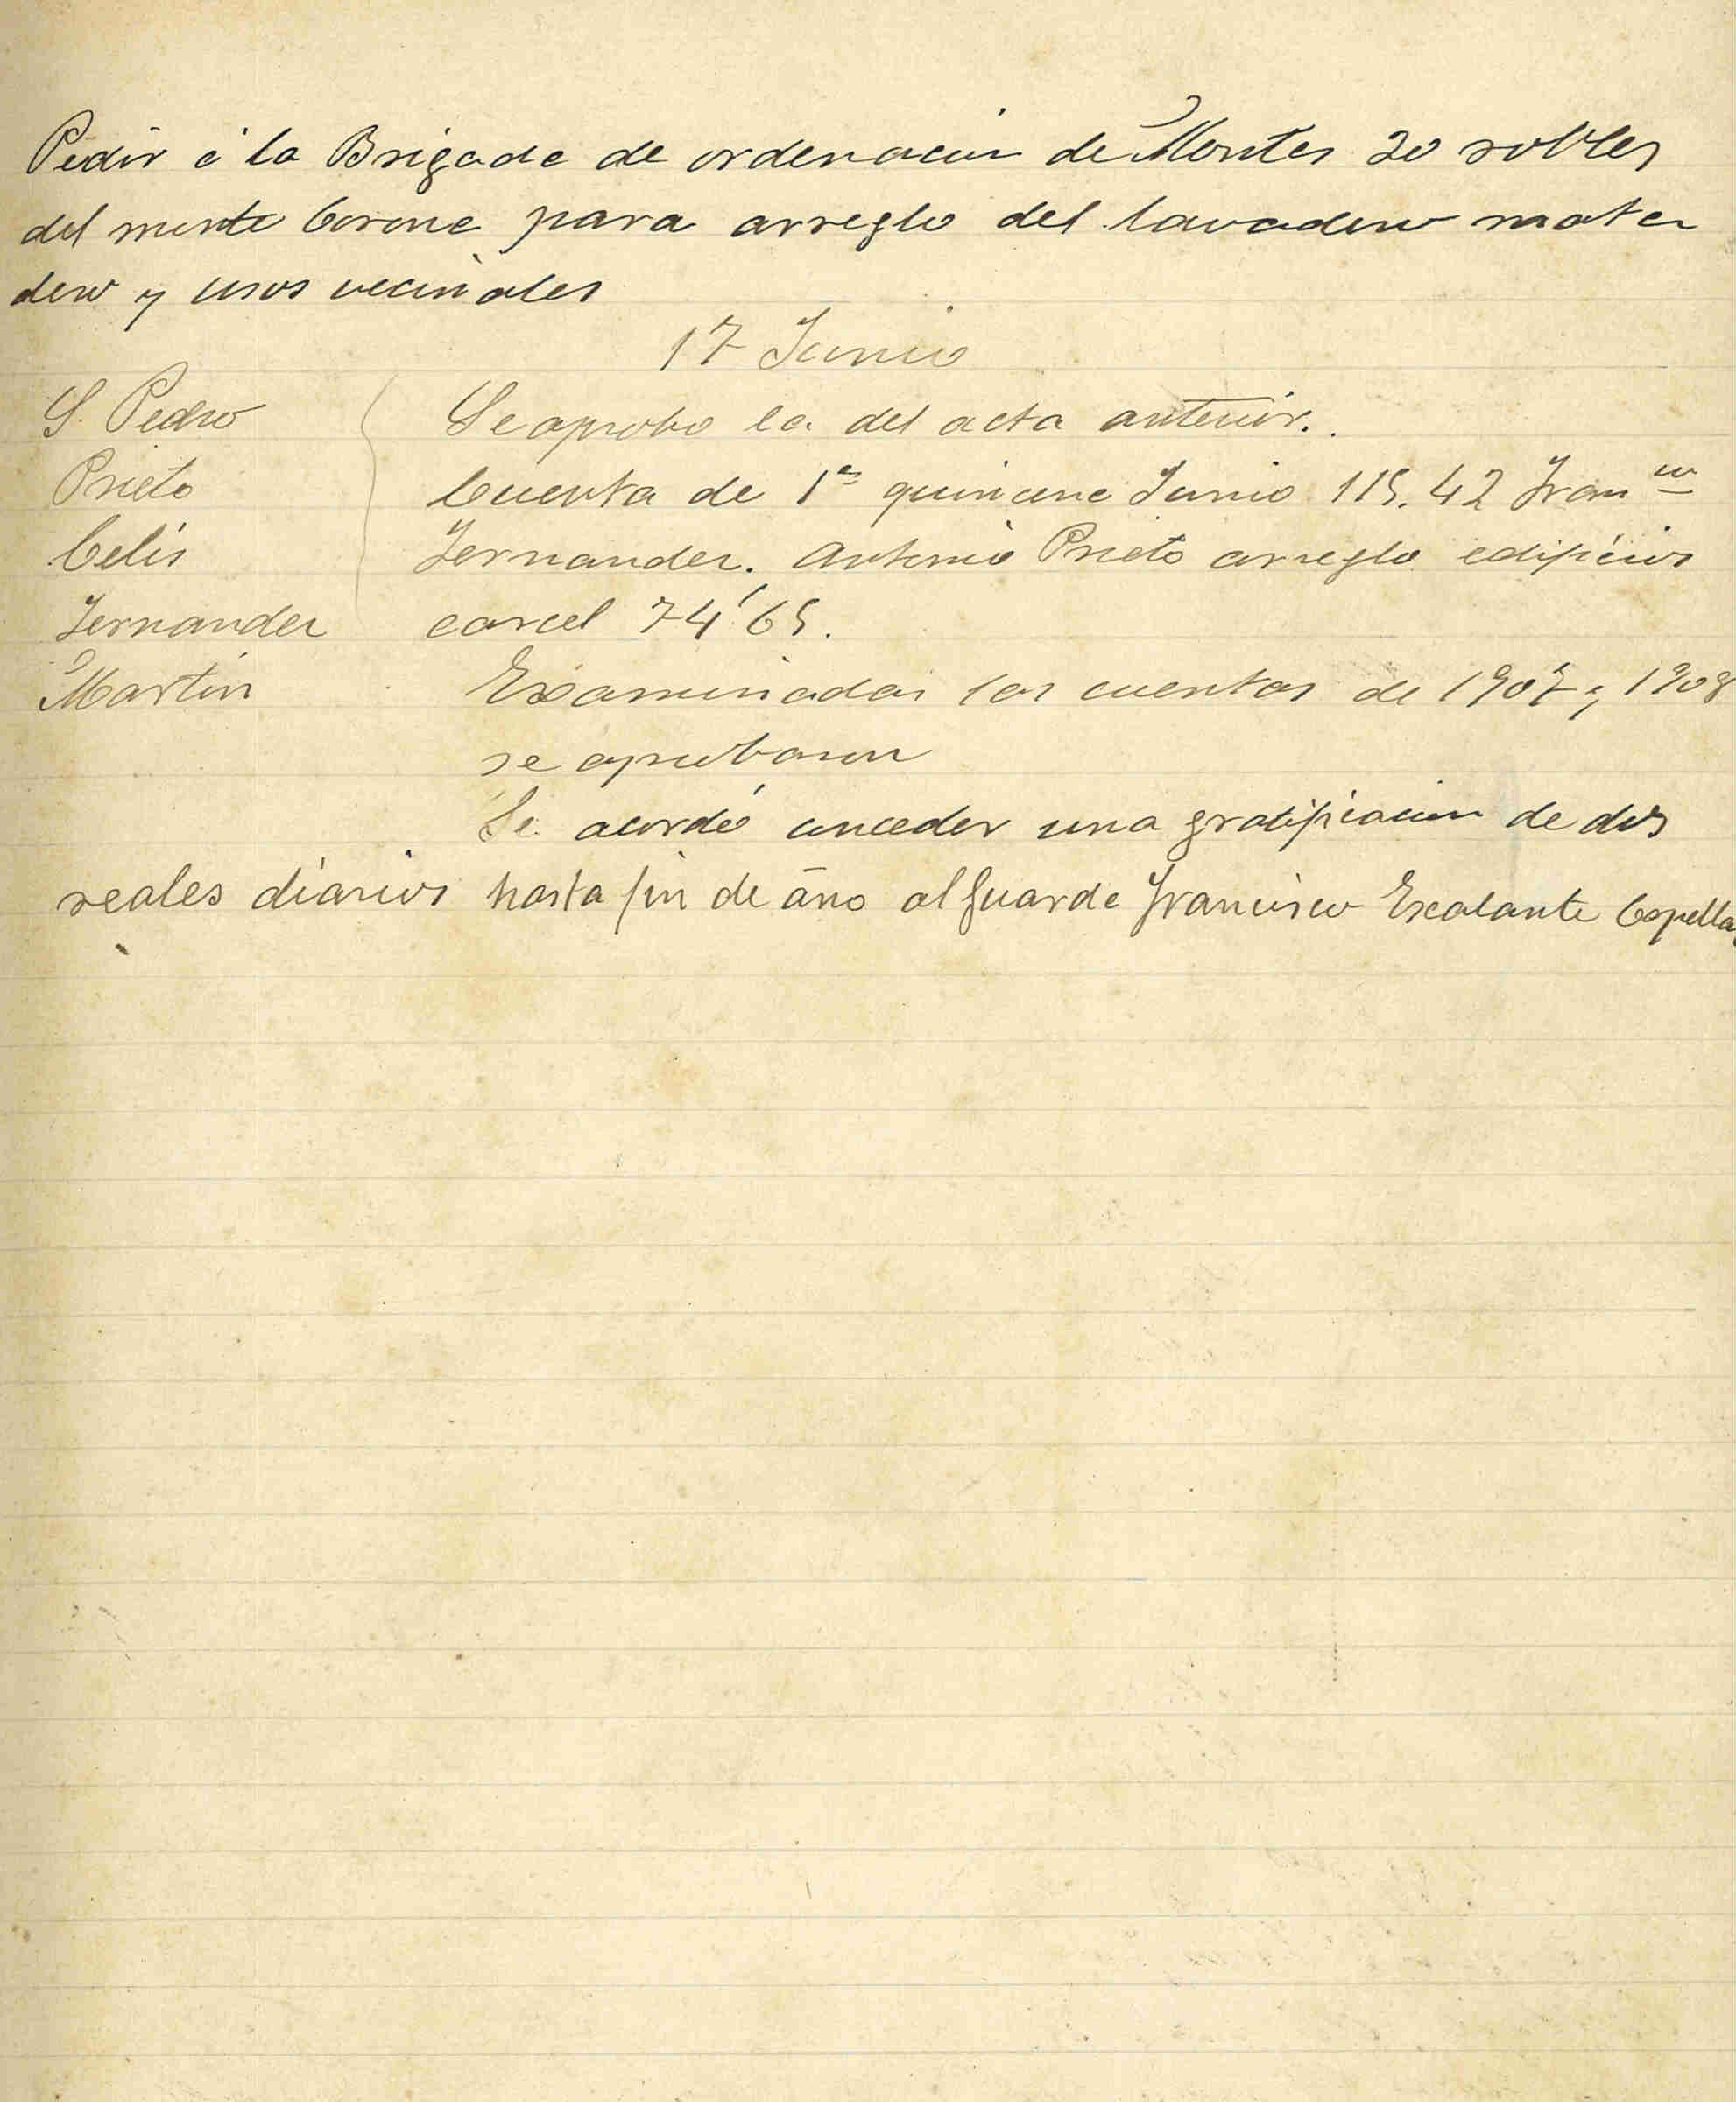 Pedir á la Brigada de ordenacion de Montes 20 robles
del monte Corona para arreglo del lavadero mata
dero y usos vecinales
17 Junio
S. Pedro
Prieto
Celis
Fernandez
Martin
Se aprobo la del acta anterior.
Cuenta de 1ª quincena Junio 115.42 Franco
Fernandez. Antonio Prieto arreglo edificios
carcel 74'65.
Examinadas las cuentas de 1907 y 1908
se aprobaron
Se acordó conceder una gratificacion de dos
reales diarios hasta fin de año al guarda Francisco Escalante Capella